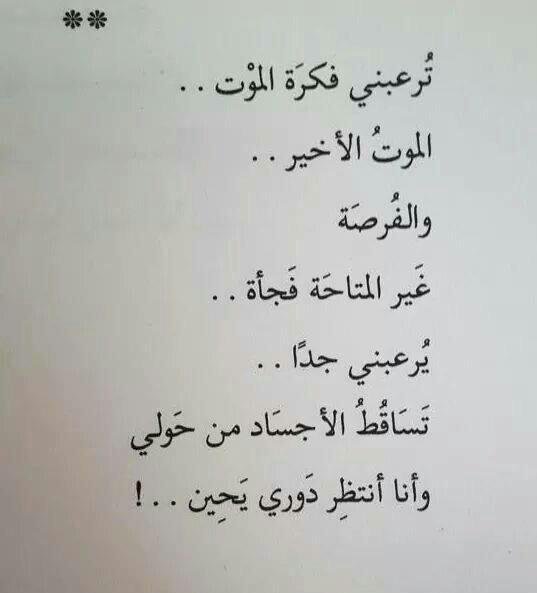 **
تُرعبني فكرَة الموْت . .
الموتُ الأخير . .
والفُرصَة
غَير المتاحَة فَجأة . .
يُرعبني جدًا . .
تَسَاقُطُ الأجسَاد من حَولي
وأنا أنتظِر دَوري يَحِين . . !